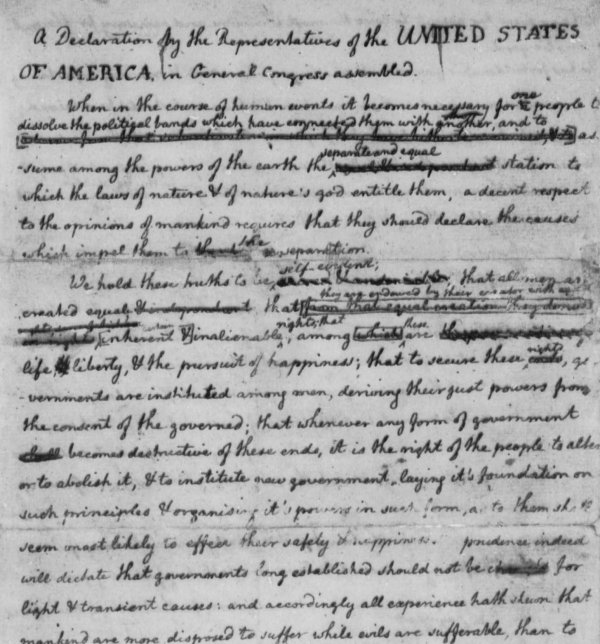 A Declaration by the Representatives of the UNITED STATES
OF AMERICA, in General Congress assembled.
When in the course of human events it becomes necessary for one people to
dissolve the political bands which have connected them with another, and to
as-
separate and equal
sume among the powers of the earth the station to
which the laws of nature & of nature's god entitle them, a decent respect
to the opinions of mankind requires that they should declare the causes
which impel them to the separation.
self-evident;
We hold these truths to be, that all men are
they are endowed by their creator with
created equal & independent, that from that equal creation they derive
rights; that these
in rights inherent & inalienable, among which are
rights
life, liberty, & the pursuit of happiness; that to secure these ends, go-
vernments are instituted among men, deriving their just powers from
the consent of the governed; that whenever any form of government
shall becomes destructive of these ends, it is the right of the people to alter
or to abolish it, & to institute new government, laying it's foundation on
such principles & organising it's powers in such form, as to them shall
seem most likely to effect their safety & happiness. prudence indeed
will dictate that governments long established should not be for
light & transient causes: and accordingly all experience hath shewn that
mankind are more disposed to suffer while evils are sufferable, than to